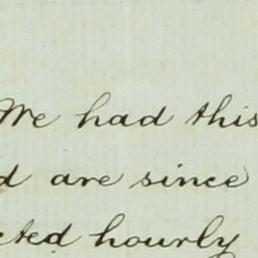 We had this
d are since
cted hourly